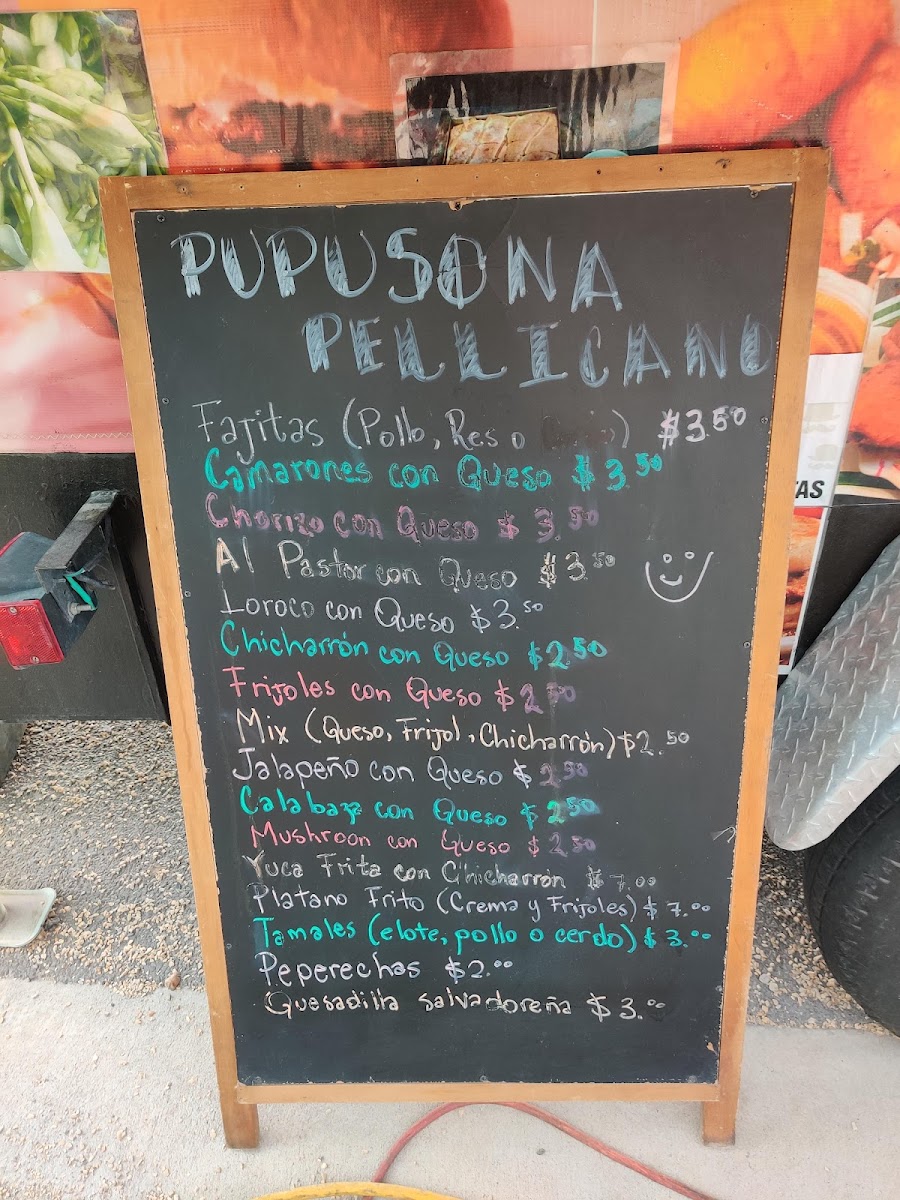 PUPUSONA
PELLICANO
Fajitas (Pollo, Res o ) $3.50
Camarones con Queso $3.50
Chorizo con Queso $3.50
Al Pastor con Queso $3.50
Loroco con Queso $3.50
Chicharrón con Queso $2.50
Frijoles con Queso $2.50
Mix (Queso, Frijol, Chicharrón) $2.50
Jalapeño con Queso $2.50
Calabaza con Queso $2.50
Mushroon con Queso $2.50
Yuca Frita con Chicharrón $7.00
Platano Frito (Crema y Frijoles) $7.00
Tamales (elote, pollo o cerdo) $3.00
Peperechas $2.00
Quesadilla salvadoreña $3.00